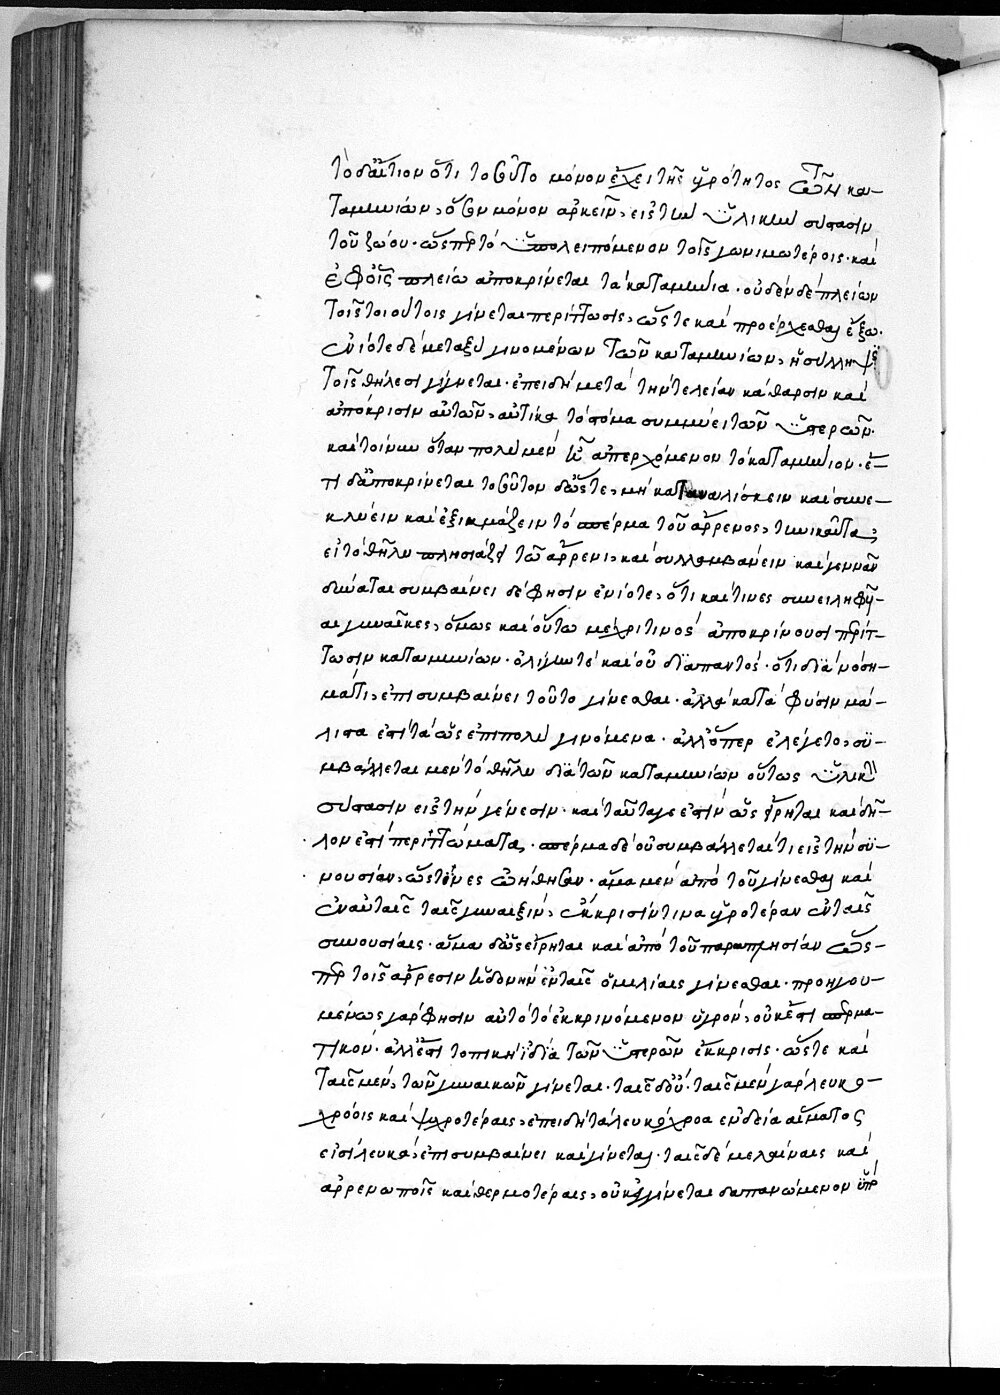 τὸ δ' αἴτιον ὅτι τοσοῦτο μόνον ἔχει τῆς ὑγρότητος τῶν κα-
ταμηνίων, ὅσον μόνον ἀρκεῖν, εἰς τὴν ὑλικὴν σύστασιν
τοῦ ζώου· ὥσπερ τὸ ὑπολειπόμενον τοῖς γονιμωτέροις· καὶ
ἐφ' οἷς πλείω ἀποκρίνεται τὰ καταμήνια· οὐδὲν δὲ πλείων
τοῖς τοιούτοις γίνεται περίττωσις, ὥστε καὶ προέρχεσθαι ἔξω.
ἐνίοτε δὲ μεταξὺ γινομένων τῶν καταμηνίων, ἡ σύλληψις
τοῖς θήλεσι γίγνεται· ἐπειδὴ μετὰ τὴν τελείαν κάθαρσιν καὶ
ἀπόκρισιν αὐτῶν, αὐτίκα τὸ στόμα συμμύει τῶν ὑστερῶν·
καὶ τοίνυν ὅταν πολὺ μὲν ᾖ ἀπερχόμενον τὸ καταμήνιον· ἔ-
τι δ' ἀποκρίνεται τοσοῦτον δ' ὥστε, μὴ καταναλίσκειν καὶ συνε-
κλύειν καὶ ἐξικμάζειν τὸ σπέρμα τοῦ ἄρρενος, τηνικαῦτα,
εἰ τὸ θῆλυ πλησιάζει τῷ ἄρρενι, καὶ συλλαμβάνειν καὶ γεννᾶν
δύναται συμβαίνει δέ φησιν ἐνίοτε, ὅτι καί τινες συνειληφυῖ-
αι γυναῖκες, ὅμως καὶ οὕτω μέχρι τινὸς ἀποκρίνουσι περίτ-
τωσιν καταμηνίων· ὀλίγην τε καὶ οὐ διαπαντός· ὅτι διὰ νόση-
μά τι, ἐπισυμβαίνει τοῦτο γίνεσθαι· ἀλλὰ κατὰ φύσιν μά-
λιστα ἐστὶ τὰ ὡς ἐπιπολὺ γινόμενα· ἀλλ' ὅπερ ἐλέγετο, συ-
μβάλλεται μὲν τὸ θῆλυ διὰ τῶν καταμηνίων οὕτως ὑλικὴν
σύστασιν εἰς τὴν γένεσιν· καὶ ταῦτά γε ἐστὶν ὡς εἴρηται καὶ δῆ-
λον ἐστὶ περιττώματα, σπέρμα δὲ οὐ συμβάλλεταί τι εἰς τὴν συ-
νουσίαν, ὥς τινες ᾠήθησαν· ἅμα μὲν ἀπὸ τοῦ γίνεσθαι καὶ
ἐν αὐταῖς ταῖς γυναιξίν, ἔκκρισίν τινα ὑγροτέραν ἐν ταῖς
συνουσίαις· ἅμα δ' ὡς εἴρηται καὶ ἀπὸ τοῦ παραπλησίαν ὥσ-
περ τοῖς ἄρρεσιν ἡδονὴν ἐν ταῖς ὁμιλίαις γίνεσθαι· προηγου-
μένως γάρ φησιν αὐτὸ τὸ ἐκκρινόμενον ὑγρόν, οὐκ ἔστι σπερμα-
τικόν· ἀλλ' ἔστι τοπικὴ ἰδία τῶν ὑστερῶν ἔκκρισις· ὥστε καὶ
ταῖς μέν, τῶν γυναικῶν γίνεται· ταῖς δ' οὔ· ταῖς μὲν γὰρ λευκο-
χρόοις καὶ ψυχροτέραις, ἐπειδὴ τὰ λευκόχροα ἐνδείᾳ αἵματος
εἰσὶ λευκά, ἐπισυμβαίνει καὶ γίνεται· ταῖς δὲ μελαίναις καὶ
ἀρρενωποῖς καὶ θερμοτέραις, οὐκ γίνεται δαπανώμενον ὑπὸ